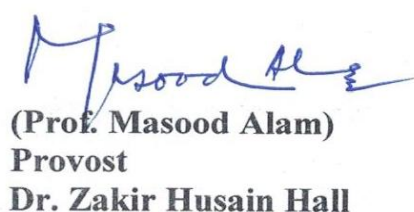 Masood Al
(Prof. Masood Alam)
Provost
Dr. Zakir Husain Hall